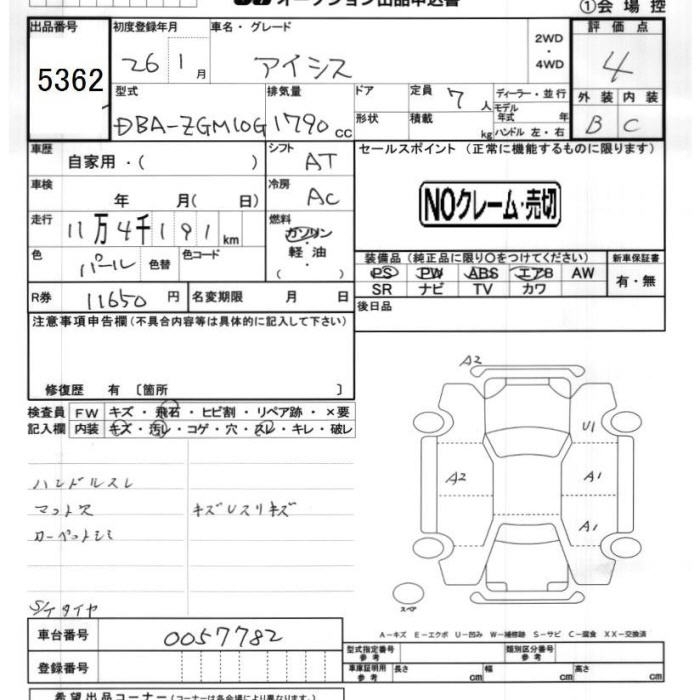 オークション出品申込書
①会場控
出品番号 初度登録年月 車名・グレード 評価点
5362 26 1月 アイシス 2WD・4WD 4
型式 排気量 ドア 定員 7人 ディーラー・並行 外装 内装
DBA-ZGM10G 1790cc 形状 積載 kg モデル年式 年 ハンドル 左・右 B C
車歴 自家用・( ) シフト AT セールスポイント(正常に機能するものに限ります)
車検 年 月( 日) 冷房 AC NOクレーム・売切
走行 11万4千191km 燃料 ガソリン 軽油・( )
色 パール 色替 色コード
装備品(純正品に限り○をつけてください) 新車保証書
PS PW ABS エアB AW 有・無
SR ナビ TV カワ
R券 11650円 名変期限 月 日 後日品
注意事項申告欄(不具合内容等は具体的に記入して下さい)
修復歴 有 〔箇所 〕
検査員 FW キズ・飛石・ヒビ割・リペア跡・×要
記入欄 内装 キズ・汚レ・コゲ・穴・スレ・キレ・破レ
A2
U1
A2 A1
A1
ハンドルスレ
キズUスリキズ
S/Tタイヤ
スペア
A-キズ E-エクボ U-凹み W-補修跡 S-サビ C-腐食 XX-交換済
車台番号 0057782
型式指定番号 参考 類別区分番号 参考
登録番号 車庫証明用 参考 長さ cm 幅 cm 高さ cm
希望出品コーナー(コーナーは各会場により異なります)